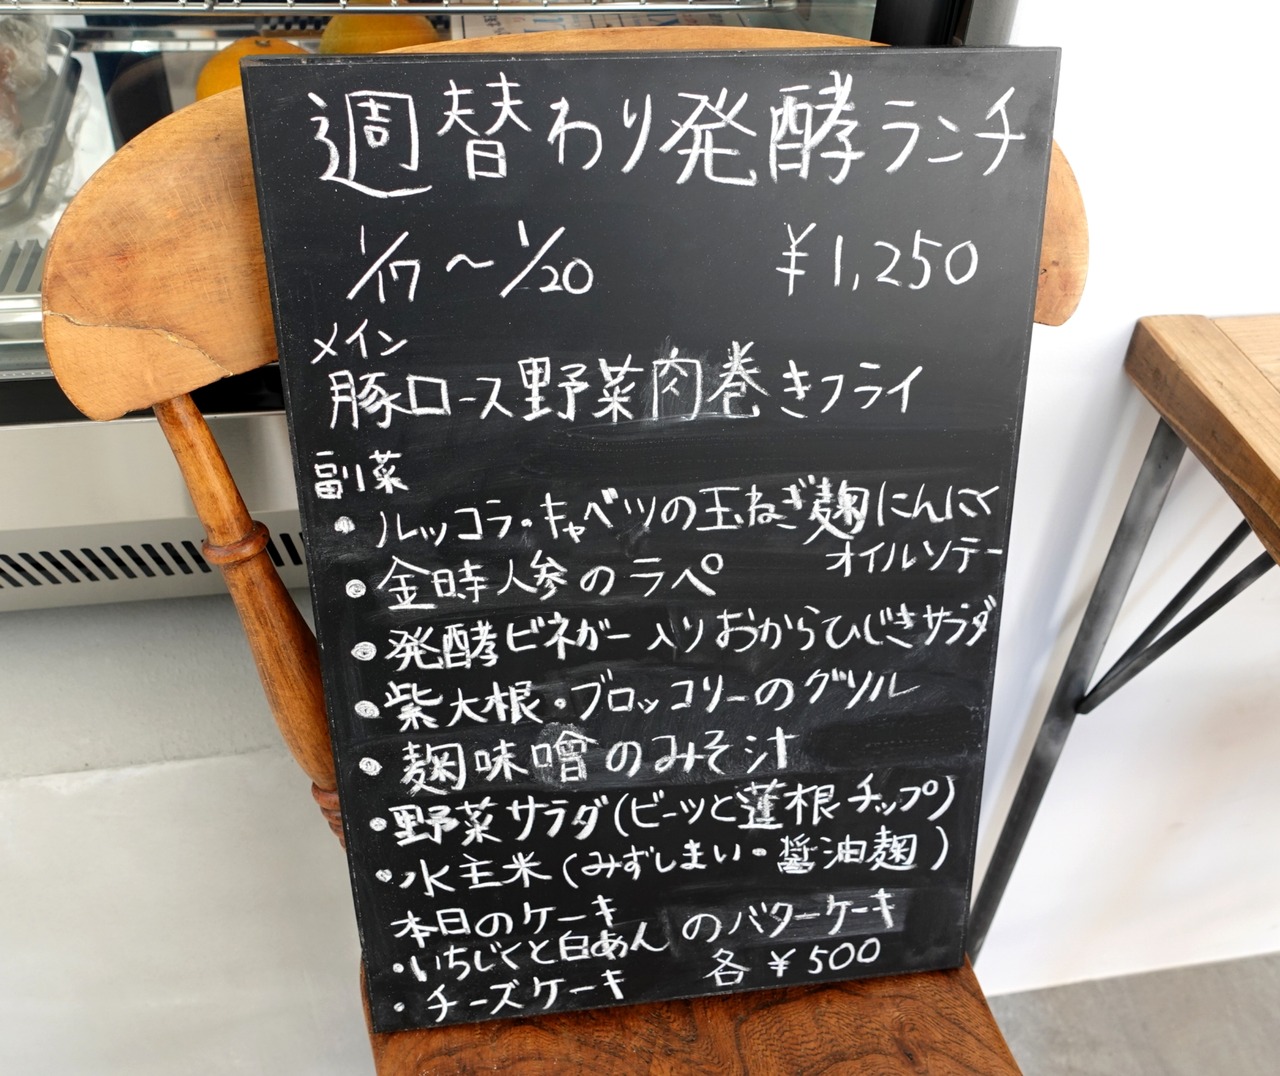 週替わり発酵ランチ
1/17～1/20 ¥1,250
メイン
豚ロース野菜肉巻きフライ
副菜
・ルッコラ・キャベツの玉ねぎ麹にんにく
オイルソテー
・金時人参のラペ
・発酵ビネガー入りおからひじきサラダ
・紫大根・ブロッコリーのグリル
・麹味噌のみそ汁
・野菜サラダ(ビーツと蓮根チップ)
・水主米(みずしまい・醤油麹)
本日のケーキ
・いちじくと白あんのバターケーキ
・チーズケーキ 各¥500